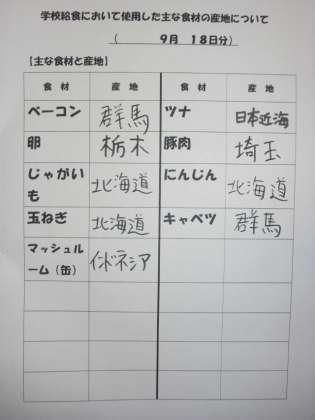 学校給食において使用した主な食材の産地について
（　　　9月　18日分）
【主な食材と産地】
食　材　産　地　食　材　産　地
ベーコン　群馬　ツナ　日本近海
卵　栃木　豚肉　埼玉
じゃがいも　北海道　にんじん　北海道
玉ねぎ　北海道　キャベツ　群馬
マッシュルーム（缶）　インドネシア